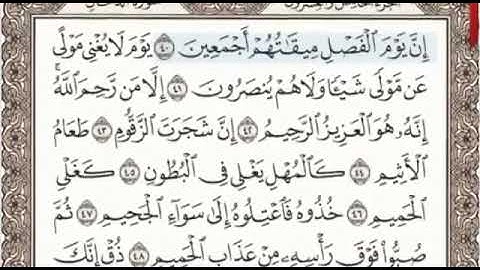 إِنَّ يَوْمَ ٱلْفَصْلِ مِيقَٰتُهُمْ أَجْمَعِينَ ٤٠ يَوْمَ لَا يُغْنِى مَوْلًى
عَن مَّوْلًى شَيْـًٔا وَلَا هُمْ يُنصَرُونَ ٤١ إِلَّا مَن رَّحِمَ ٱللَّهُ ۚ
إِنَّهُۥ هُوَ ٱلْعَزِيزُ ٱلرَّحِيمُ ٤٢ إِنَّ شَجَرَتَ ٱلزَّقُّومِ ٤٣ طَعَامُ
ٱلْأَثِيمِ ٤٤ كَٱلْمُهْلِ يَغْلِى فِى ٱلْبُطُونِ ٤٥ كَغَلْىِ
ٱلْحَمِيمِ ٤٦ خُذُوهُ فَٱعْتِلُوهُ إِلَىٰ سَوَآءِ ٱلْجَحِيمِ ٤٧ ثُمَّ
صُبُّوا۟ فَوْقَ رَأْسِهِۦ مِنْ عَذَابِ ٱلْحَمِيمِ ٤٨ ذُقْ إِنَّكَ